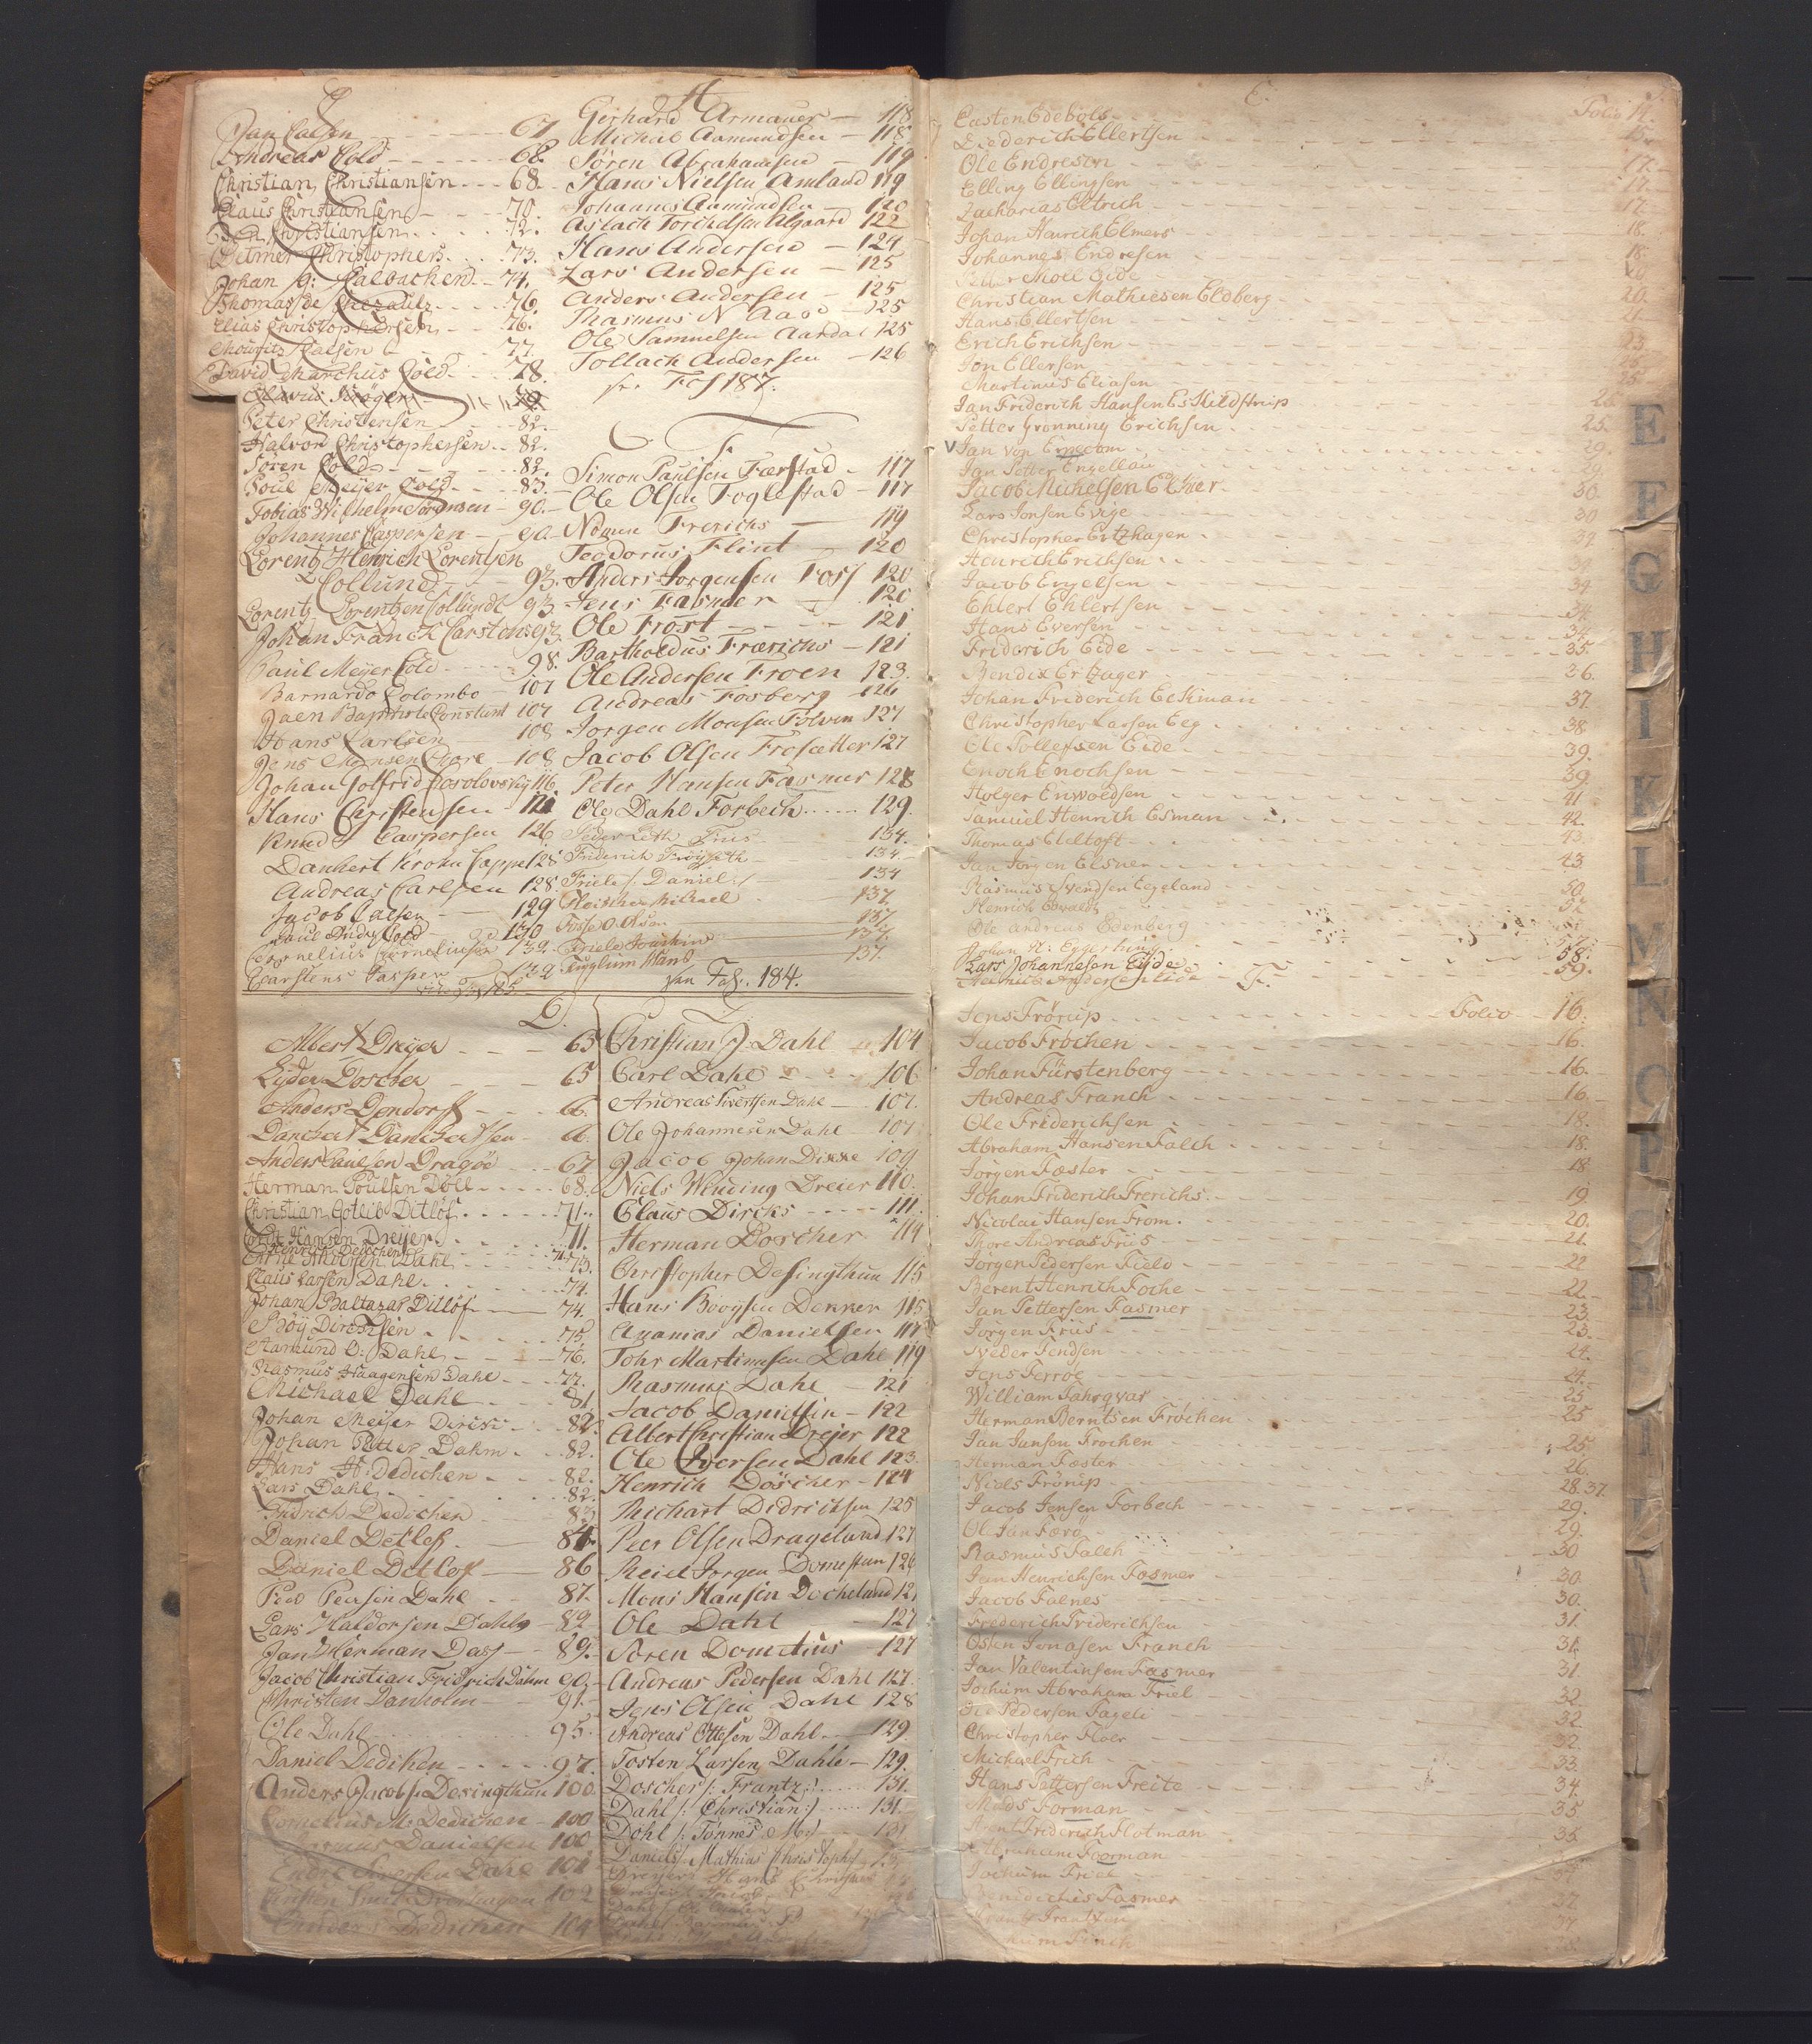 C.
Jan Calsen 67
Andreas Cold 68.
Christian Christiansen 68.
Claus Christiansen 70.
Christiansen 72.
Ditmer Christophers 73.
Johan Calbachen 74.
Thomas de Chezaulx 76.
Elias Christophersen 76.
Mouritz Calsen 77.
David Marchus Cold 78.
Olavus Krøger
Peter Christensen 82.
Halvor Christophersen 82.
Søren Cold 82.
Poul Meyer Cold 83.
Tobias Wilhelm 90.
Johannes Caspersen 90.
Lorentz Henrich Lorentsen
Collund 93.
Lorentz Lorentzen Collundt 93
Johan Franck Carstens 93
Paul Meyer Cold 98.
Barnardo Colombo 107
Jaen Baptiste Constant 107
Hans Carlsen 108
Jens Monsen 108
Johan Gotfrid 116.
Hans Christensen 121
Knud Caspersen 126
Danckert Krohn Cappe 128
Andreas Carlsen 128.
Jacob Calsen 129
Paul Cold 130
Cornelius Cornelius 132.
Carstens Casper 132
A
Gerhard Armauer 118
Michal Aamundsen 118
Søren Abrahamsen 119
Hans Nielsen Amland 119
Johannes Aamundsen 120
Aslach Torchelsen Algaard 122
Hans Andersen 124
Lars Andersen 125
Anders Andersen 125
Rasmus N Aas 125
Ole Samuelsen Aardal 125
Tollach Andersen 126
Fol 187.
F.
Simon Paulsen Færstad 117
Ole Olsen Foglestad 117
Frerichs 119
Teodorus Flint 120
Anders Jorgensen Foss 120
Jens Fasmer 120
Ole Frost 121
Bartholdus Frærichs 121
Ole Andersen Froen 123.
Andreas Fosberg 126
Jorgen Monsen Folven 127
Jacob Olsen Frosætter 127
Peter Hansen Fasmer 128
Ole Dahl Forbech 129
Peder Friis 134.
Friderich 134.
Friele /: Daniel :/ 134
Fleischer Michael 137
Fosse O. Olsen 137
Friele Joachim 137
Fuglum Hans 137.
Fol. 184.
D.
Albert Dreyer 65
Lyder Döscher 65
Anders Dendorff 66.
Danckert Danckertsen 66.
Anders Paulsen Dragøe 67
Herman Poulsen Doll 68.
Christian Gotlib Ditløf 71.
Cordt Hansen Dreyer 71.
Henrich Dedechen 71.
Dahl 73.
Claus Larsen Dahl 74.
Johan Baltazar Ditløf 74.
Bøy Dirchsen 75.
Aamund O: Dahl 76.
Rasmus Haagensen Dahl 77.
Michael Dahl 81
Johan Meyer Dirich 82.
Johan Petter Dahm 82.
Hans H: Dedichen 82.
Lars Dahl 82.
Fridrich Dedichen 83
Daniel Detlef 84
Daniel Ditlef 86
Peer Peersen Dahl 87.
Lars Haldorsen Dahle 89
Jan Herman Dass 89.
Jacob Christian Fridrich Dahm 90.
Christen Danholm 91.
Ole Dahl 95.
Daniel Dediken 97.
Anders Jacobs: Desingthun 100.
Cornelius M: Dedichen 100
Danielsen 100
Endre Iversen Dahl 101
102
Dedichen 104
Christian J. Dahl 104
Carl Dahl 106
Andreas Sivertsen Dahl 107.
Ole Johannesen Dahl 107
Jacob Johan Dikke 109
Niels Wending Dreier 110.
Claus Dircks 111.
Herman Dorscher 114
Christopher Desingthun 115
Hans Booysen Dekker 115
Ananias Danielsen 117
Tohr Martinusen Dahl 119
Rasmus Dahl 121
Jacob Danielsen 122
Albert Christian Drejer 122
Ole Iversen Dahl 123.
Henrich Döscher 124
Richart Didrichsen 125
Peer Olsen Drageland 127
Reiel Jorgen Domestun 126
Mons Hansen Docheland 127
Ole Dahl 127
Søren Dometius 127
Andreas Pedersen Dahl 127.
Jens Olsen Dahl 128
Andreas Ottesen Dahl 129
Tosten Larsen Dahle 129.
Doscher /: Frantz :/ 131.
Dahl /: Christian :/ 131.
Dohl /: Tønnes M:/ 131
Daniels /: Mathias Christoph:/
E.
Casten Edebols Folio 14.
Diederich Ellertsen 15.
Ole Endresen 17.
Elling Ellingsen 17.
Zacharias Eltrich 17.
Johan Henrich Elmers 18.
Johannes Endresen 18.
Petter Moll Eide 20.
Christian Mathiesen Eldberg 20.
Hans Ellertsen 21.
Erich Erichsen 23.
Jon Ellersen 25
Martinus Eliasen 25
Jan Friderich Hansen Eskildstrup 26.
Petter Grønning Erichsen 25.
V Jan von Emedom 29.
Jan Petter Engellau 29.
Jacob Michelsen Ellker 30.
Lars Jonsen Evige 30
Christopher Ertzhagen 32
Henrich Erichsen 34
Jacob Engelsen 34.
Ehlert Ehlertsen 34.
Hans Eversen 34.
Friderich Eide 35
Bendix Ertzager 36.
Johan Friderich Eekman 37.
Christopher Larsen Eeg 38
Ole Tollefsen Eide 39.
Enoch Enochsen 39.
Holger Enwoldsen 41
Samuel Henrich Esman 42.
Thomas Eleltoft 43.
Jan Jørgen Elsner 43
Rasmus Svendsen Eegeland 50.
Henrich Ewald 52
Ole Andreas Edenberg
Johan N: Eggerking 57.
Lars Johannesen Eyde 58.
59.
F.
Jens Frørup Folio 16.
Jacob Frøchen 16.
Johan Fürstenberg 16.
Andreas Franck 16.
Ole Friderichsen 18.
Abraham Hansen Falch 18.
Jørgen Fæster 18
Johan Friderich Frerichs 19
Nicolai Hansen From. 20.
Thore Andreas Friis 21.
Jørgen Pedersen Field 22
Berent Henrich Foche 22.
Jan Pettersen Fasmer 23.
Jørgen Friis 23.
Peder Fendsen 24.
Jens Ferrøe 24.
William Fahrqvar 25
Herman Berntsen Frøchen 25
Jan Janson Frøchen 25.
Herman Fæster 26.
Niels Frørup 28.37.
Jacob Jensen Forbech 29.
Ol Jan Færø 29.
Rasmus Falch 30
Jan Henrichsen Fasmer 30.
Jacob Falnes 30.
Frederich Friderichsen 31.
Osten Jonasen Franch 31.
Jan Valentinsen Fasmer 31.
Jochum Abraham Friel 32.
Pedersen Fageli 32.
Christopher Floer 32.
Michael Frich 33.
Hans Pettersen Freite 34.
Mads Forman 35
Arent Friderich Flotman 35.
Abraham Foorman
Jochum Friel 37
Benedictus Fasmer 37.
Frantz Frantzen 37.
Jochum Finck 38.
E
F
G
H
I
K
L
M
N
O
P
Q
R
S
T